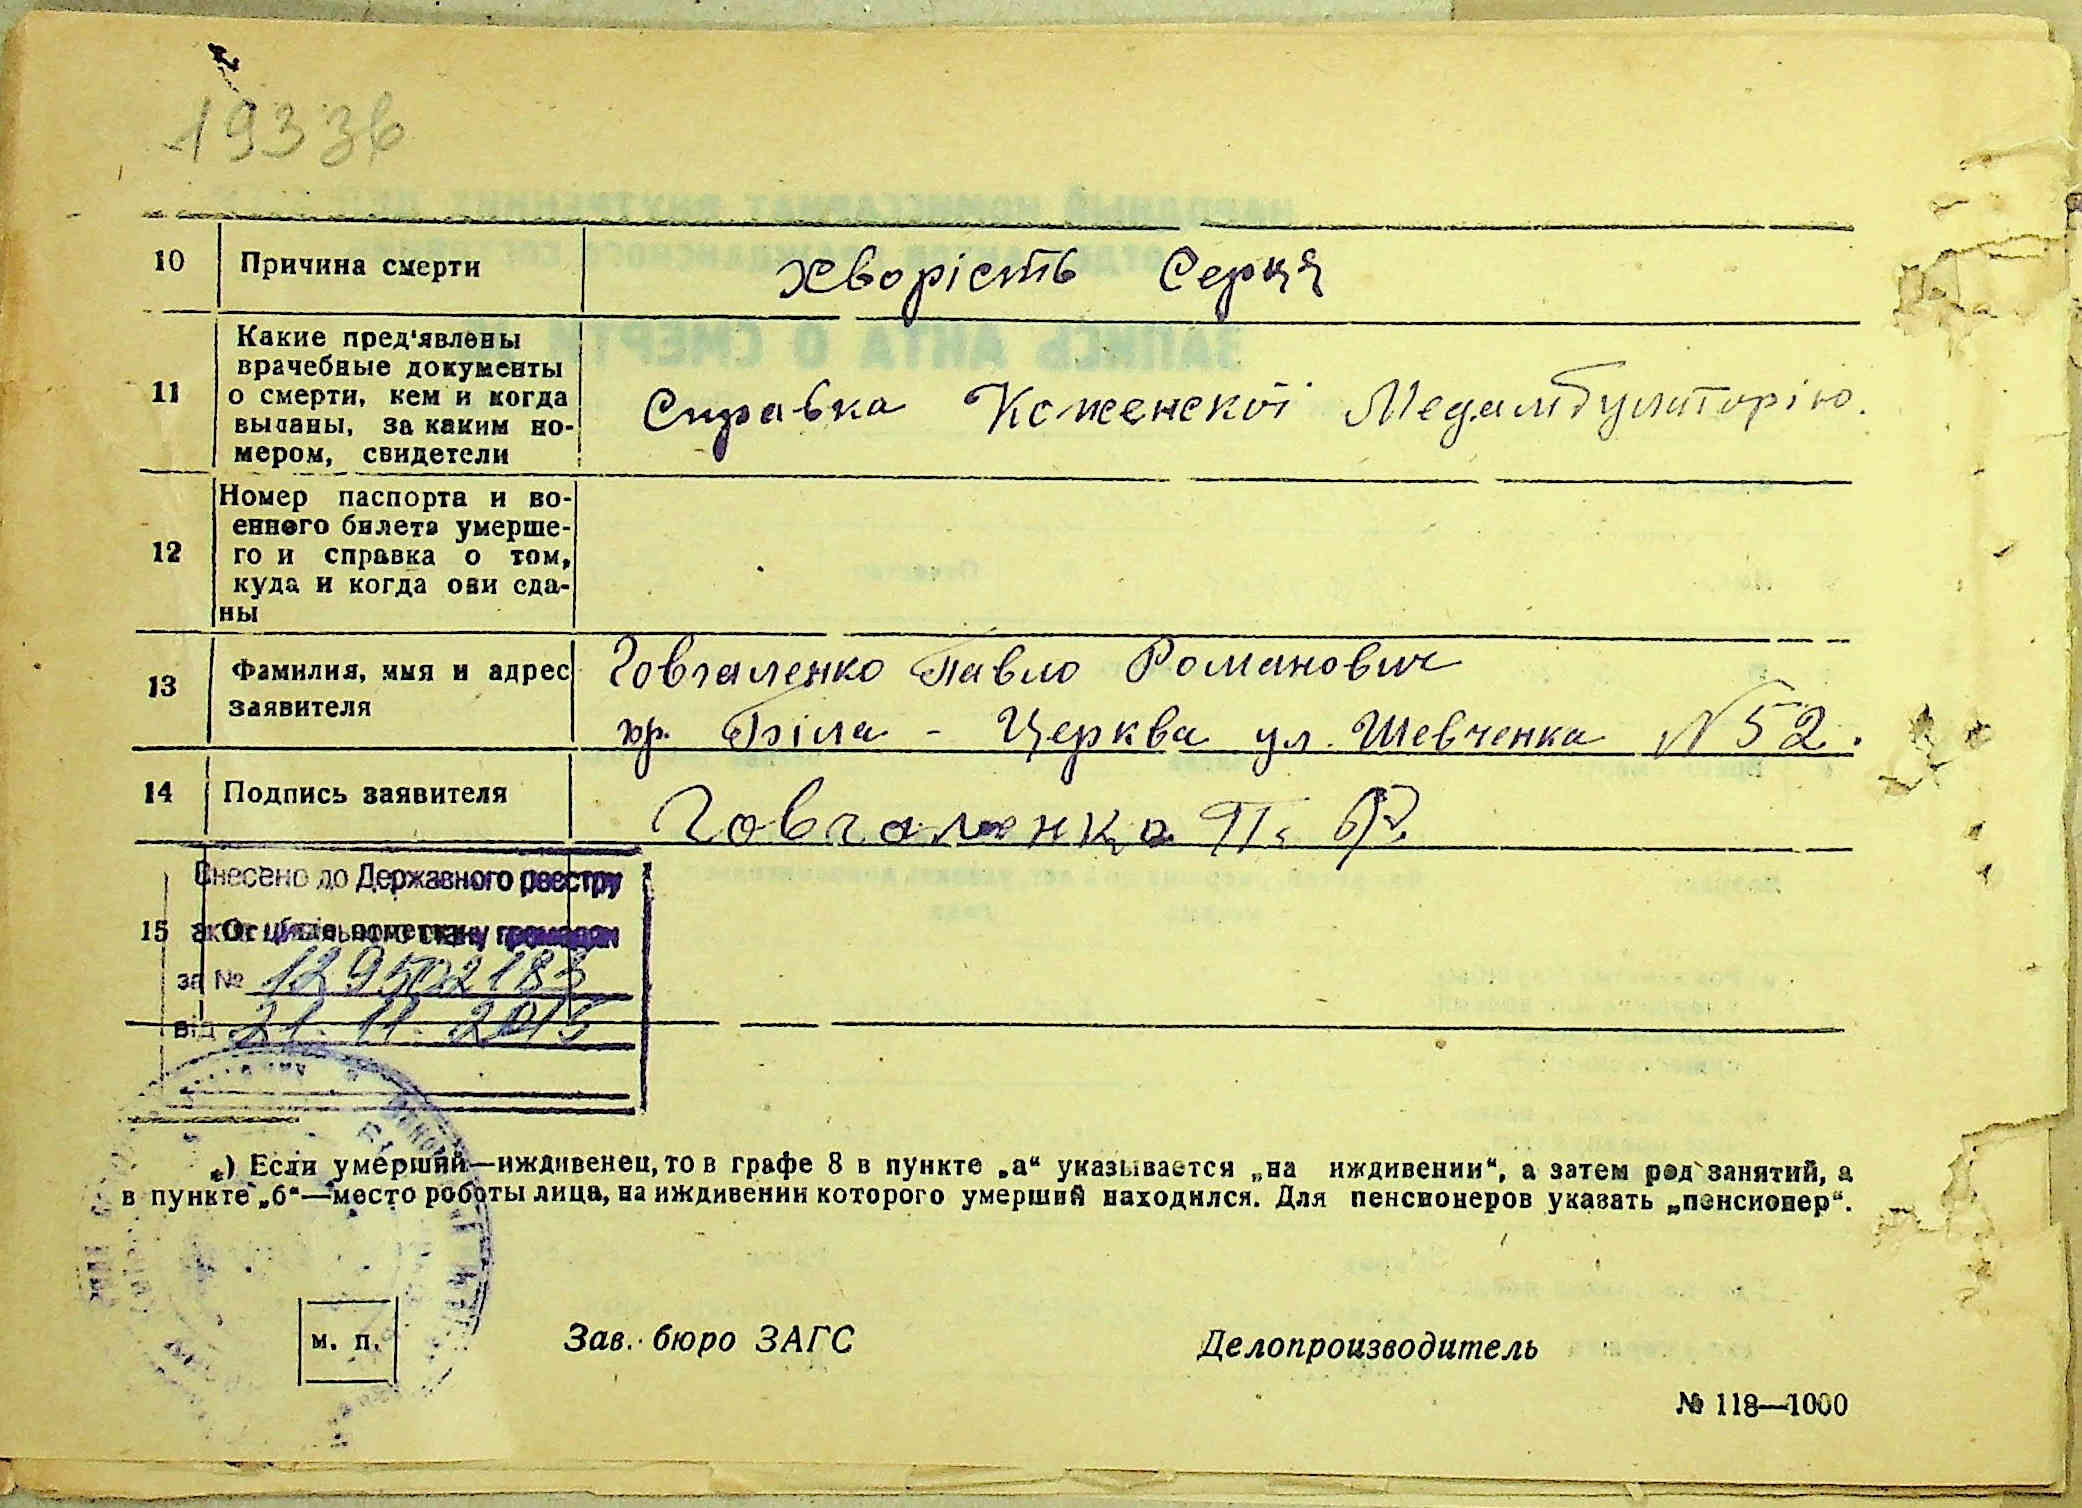 1933в
10 Причина смерти Хворість Серця
11 Какие пред'явлены
врачебные документы
о смерти, кем и когда
выданы, за каким но-
мером, свидетели
Справка Медамбулторію.
12 Номер паспорта и во-
енного билета умерше-
го и справка о том,
куда и когда они сда-
ны
13 Фамилия, имя и адрес
заявителя
Говгаленко Павло Романович
Біла - Церква ул. Шевченка № 52.
14 Подпись заявителя Говгаленко П. Р.
Внесено до Державного реєстру
15 Особые отметки
актів цивільного стану громадян
за № 129502183
від 21.11.2015
*) Если умерший—иждивенец, то в графе 8 в пункте „а“ указывается „на иждивении“, а затем род занятий, а
в пункте „б“—место роботы лица, на иждивении которого умерший находился. Для пенсионеров указать „пенсионер“.
м. п. Зав. бюро ЗАГС Делопроизводитель
№ 118—1000